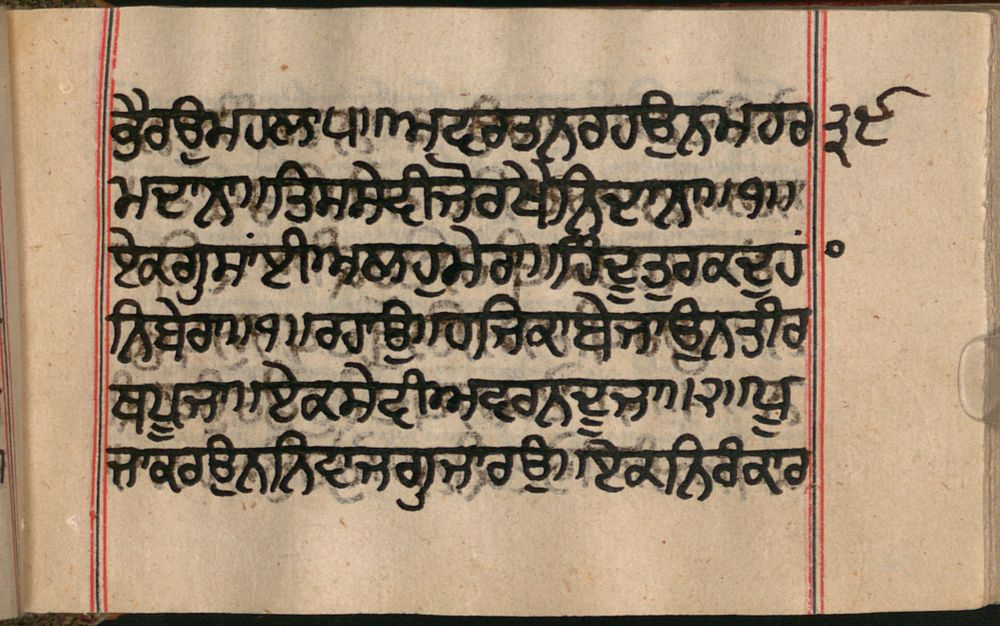 ਭੈਰਉਮਹਲਾ੫॥ਅਵਰਿਤਨਰਹਉਨਮਹਰ ੩੯
ਮਦਾਨਾ॥ਤਿਸਸੇਵੀਜੋਰਖੈਨਿਦਾਨਾ॥੧॥
ਏਕਗੁਸਾਂਈਅਲਹੁਮੇਰਾ॥ਹਿੰਦੂਤੁਰਕਦੂਹਂ
ਨਿਬੇਰਾ॥੧॥ਰਹਾਉ॥ਹਜਿਕਾਬੇਜਾਉਨਤੀਰ
ਥਪੂਜਾ॥ਏਕਸੇਵੀਅਵਰਨਦੂਜਾ॥੨॥ਪੂ
ਜਾਕਰਉਨਨਿਵਾਜਗੁਜਾਰਉ॥ਏਕਨਿਰੰਕਾਰ